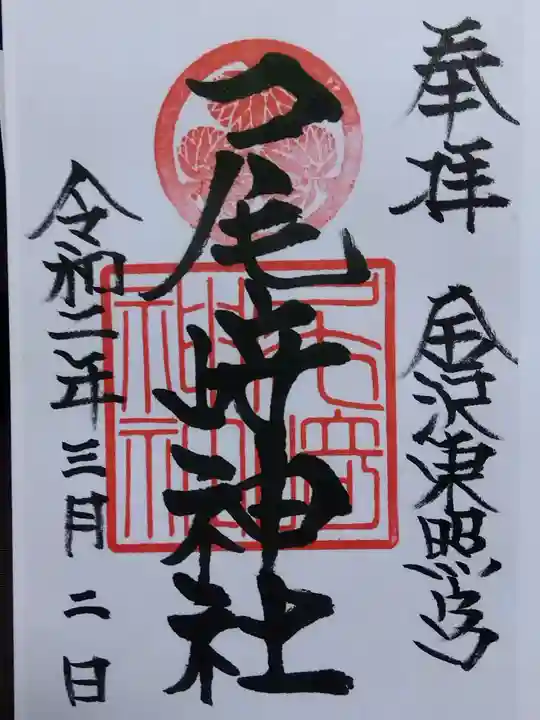 奉拝
金沢東照宮
尾崎神社
令和二年三月二日